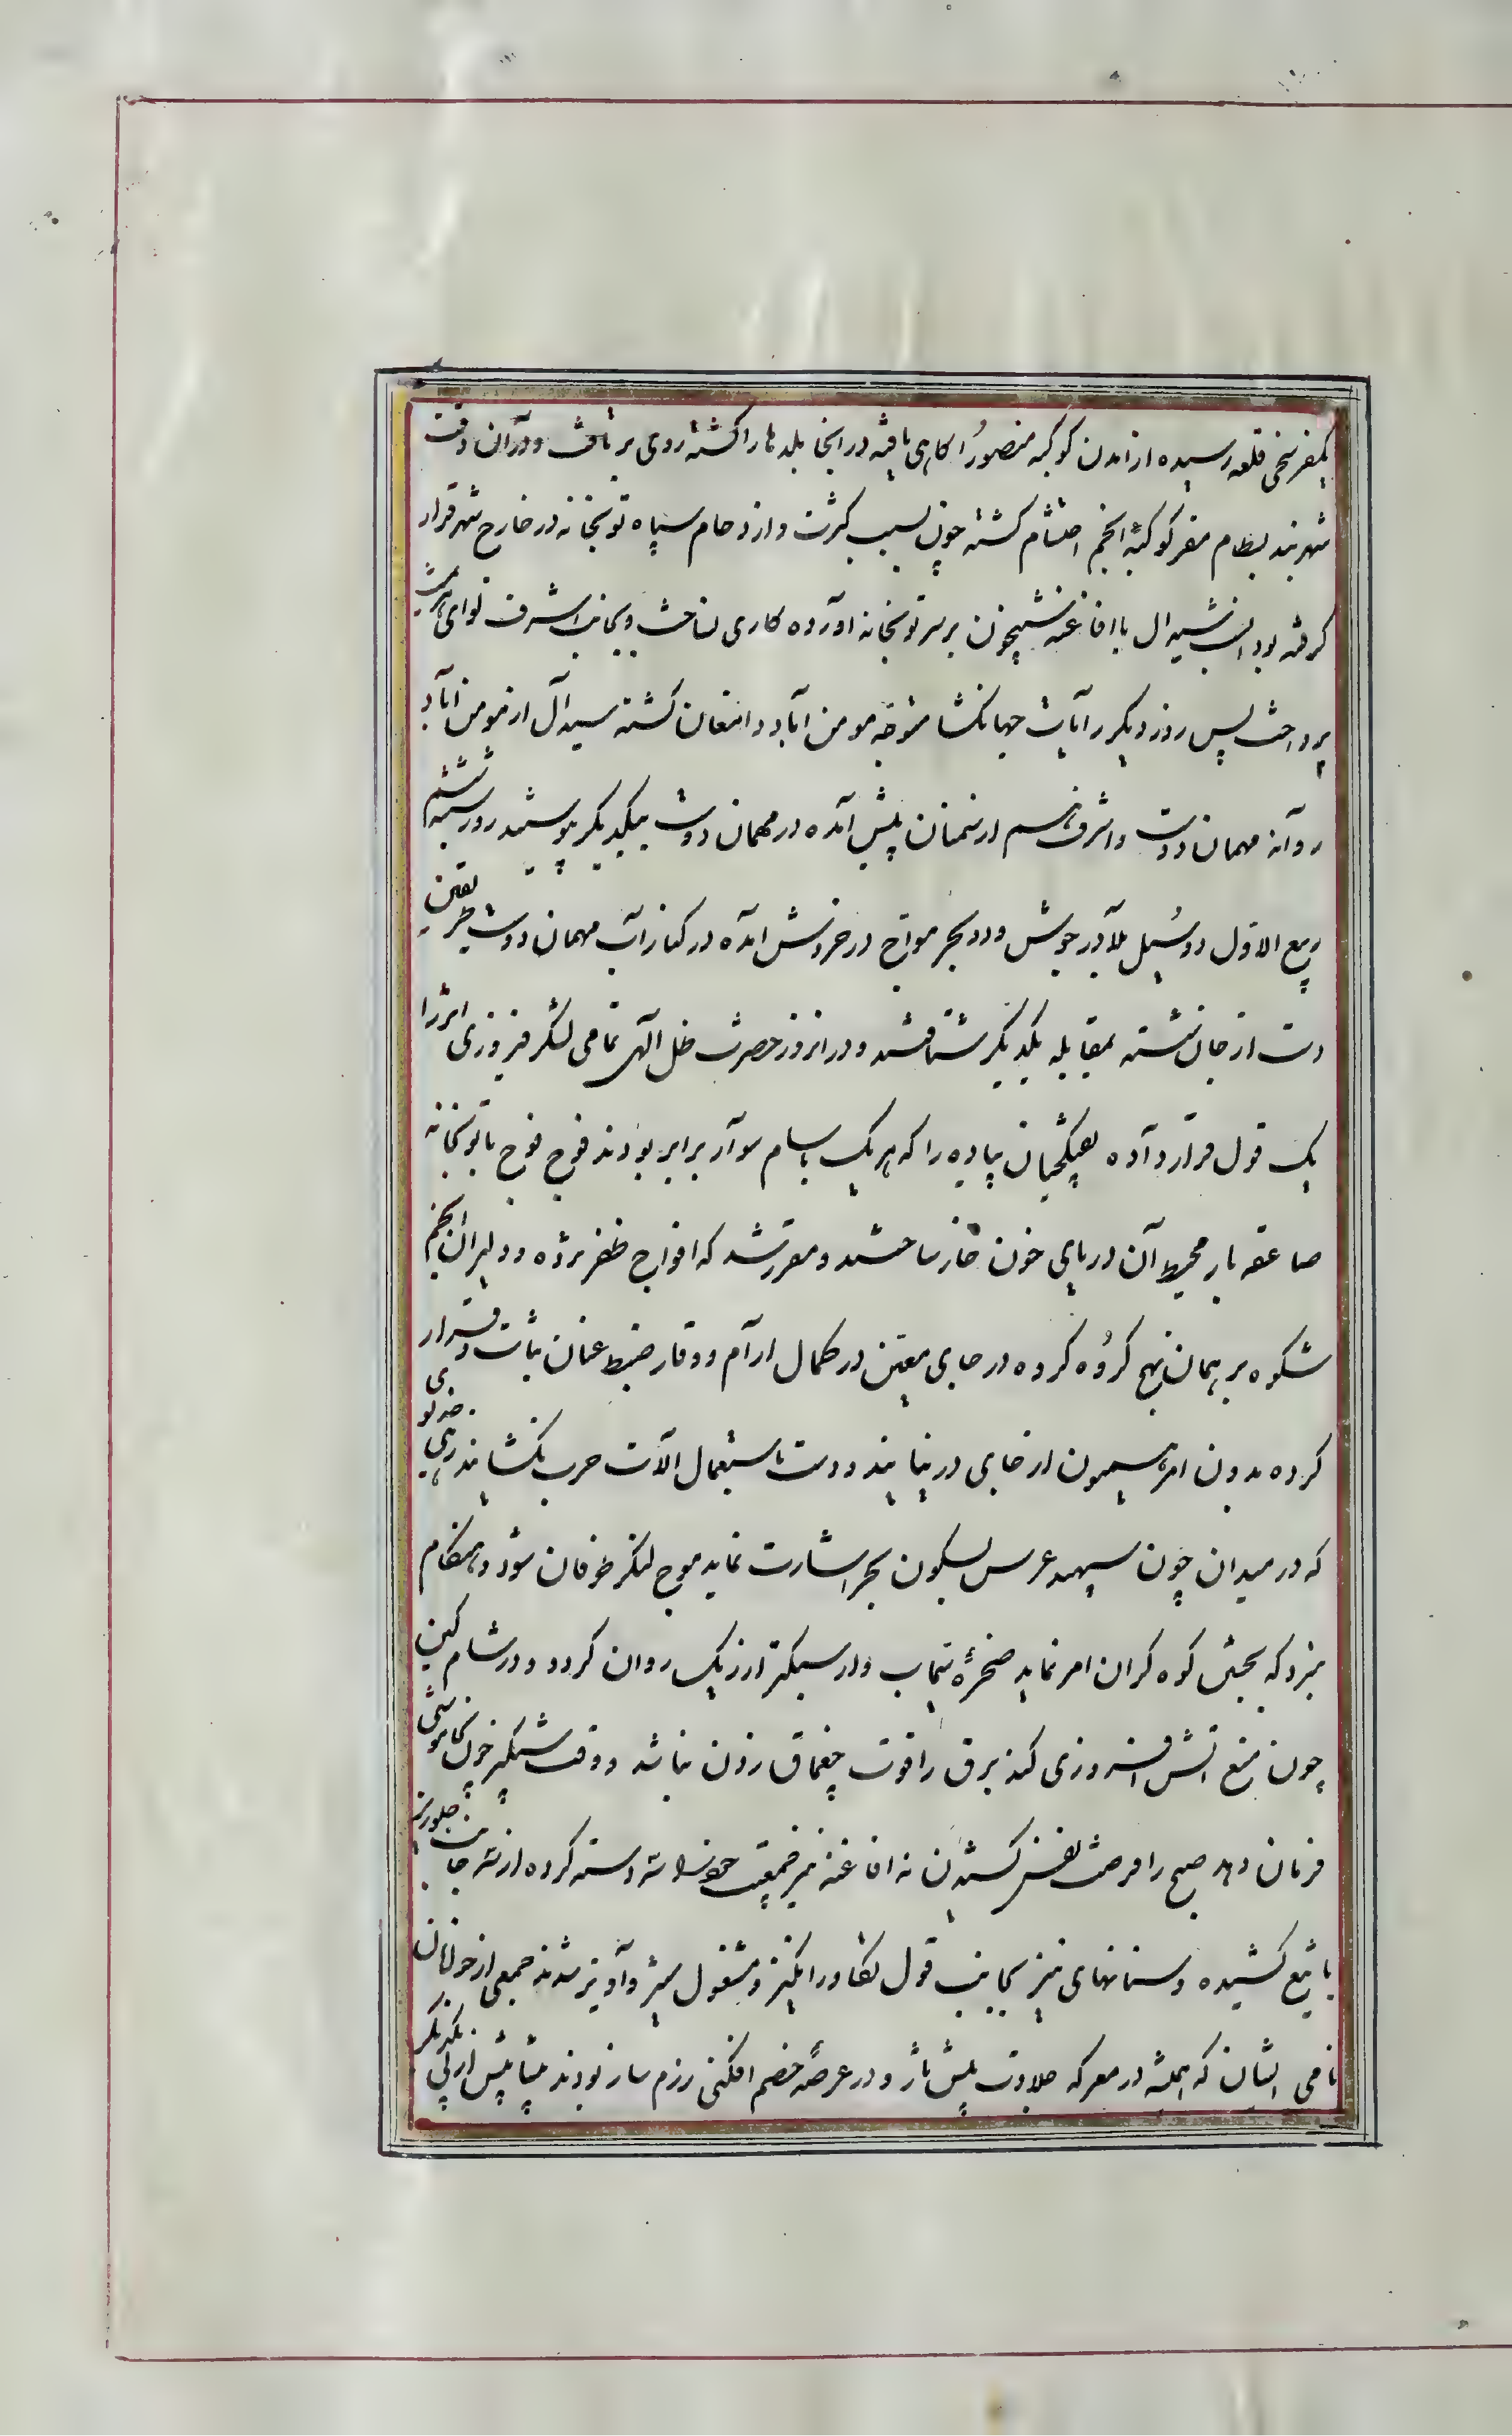 یکفرسخی قلعه رسیده از امدن کوکبه منصور اکاهی یافته در انجا بلدها را کشته روی برتافت و در آن وقت
شهربند بسطام مقر کوکبهٔ انجم احتشام کشته چون بسبب کثرت و ازدحام سپاه توپخانه در خارج شهر قرار
کرفته بود انشب سیدال با افاغنه شبیخون بر سر توپخانه اورده کاری نساخت و بجانب اشرف لوای هزیمت
پرداخت پس روز دیکر رآیات جهانکشا متوجه مومن اباد دامغان کشته سیدال از مومن اباد
روآنه مهماندوست و اشرف هم از سمنان پیش آمده در مهماندوست بیکدیکر پیوستند روز شنبه ششم
ربیع الاول دو سیل بلا در جوش و دو بحر مواج در خروش امده در کنار آب مهماندوست طریقین
دست از جان شسته بمقابله یکدیکر شتافتند و در انروز حضرت ظل الهی تمامی لشکر فیروزی اثر را
یک قول قرار دآده تفنکچیان پیاده را که هر یک با سام سوآر برابر بودند فوج فوج با توپخانه
صاعقه بار محیط آن دریای خون خار ساختند و مقرر شد که افواج ظفر پژوه و دلیران انجم
شکوه بر همان نهج کرُوه کروه در جای معین در کمال ارآم و وقار ضبط عنان ثبات و قرار
کرده بدون امر همیون از جای در نیایند و دست باستعمال الآت حرب نکشایند زهی خدیوی
که در میدان چون سپهبد عرس بسکون بحر اشارت نماید موج لنکر طوفان شود و هنکام
نبرد که بجنبش کوه کران امر نماید صخرهٔ سیماب وار سبکتر از ریک روان کردد و در شام کین
چون منع اتش افروزی کند برق را قوت چقماق زدن نباشد و وقت شبکیر چون بخاموشی
فرمان دهد صبح را فرصت نفس کشیدن نه افاغنه نیز جمعیت خود را سه دسته کرده از سه جانب جلوریز
با تیغ کشیده و سنانهای تیز بجانب قول تکاور انکیز و مشغول ستیز و آویز شدند جمعی از خوانان
نامی ایشان که همیشه در معرکه جلادت پیش تاز و در عرصه خصم افکنی رزم ساز بودند پیشاپیش از پی یکدیکر